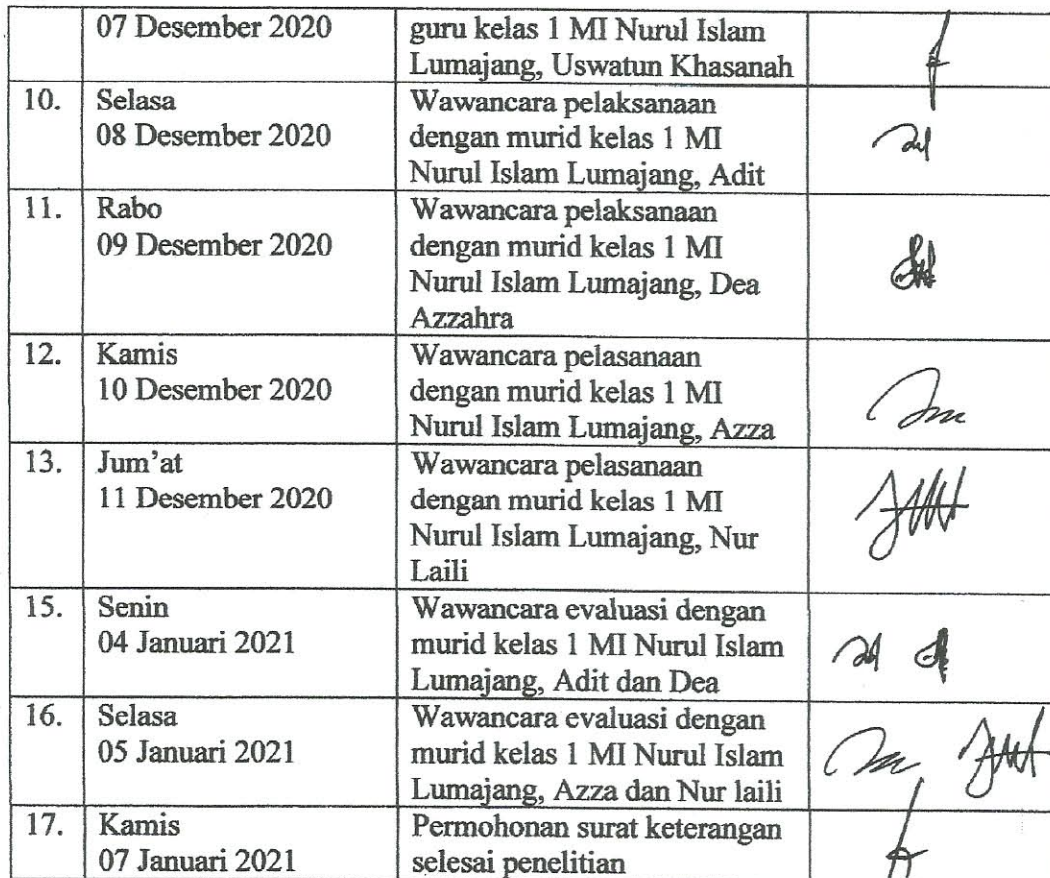 07 Desember 2020
guru kelas 1 MI Nurul Islam
Lumajang, Uswatun Khasanah
10.
Selasa
08 Desember 2020
Wawancara pelaksanaan
dengan murid kelas 1 MI
Nurul Islam Lumajang, Adit
11.
Rabo
09 Desember 2020
Wawancara pelaksanaan
dengan murid kelas 1 MI
Nurul Islam Lumajang, Dea
Azzahra
12.
Kamis
10 Desember 2020
Wawancara pelasanaan
dengan murid kelas 1 MI
Nurul Islam Lumajang, Azza
13.
Jum'at
11 Desember 2020
Wawancara pelasanaan
dengan murid kelas 1 MI
Nurul Islam Lumajang, Nur
Laili
15.
Senin
04 Januari 2021
Wawancara evaluasi dengan
murid kelas 1 MI Nurul Islam
Lumajang, Adit dan Dea
16.
Selasa
05 Januari 2021
Wawancara evaluasi dengan
murid kelas 1 MI Nurul Islam
Lumajang, Azza dan Nur laili
17.
Kamis
07 Januari 2021
Permohonan surat keterangan
selesai penelitian